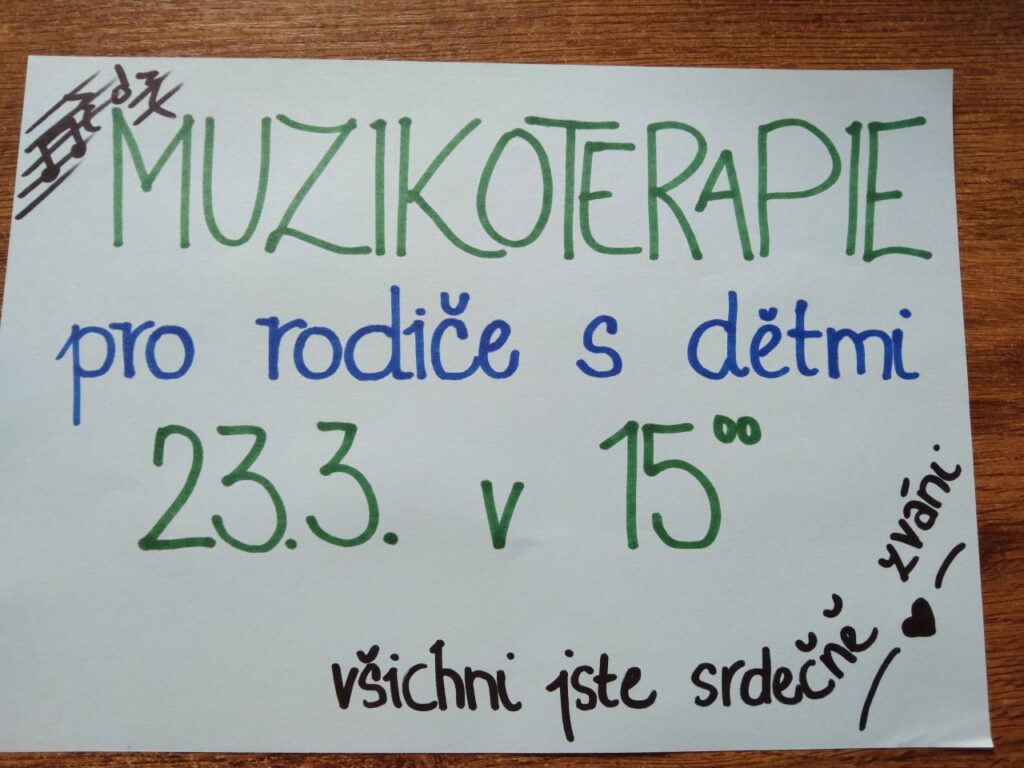 MUZIKOTERAPIE
pro rodiče s dětmi
23.3. v 15⁰⁰
všichni jste srdečně zváni